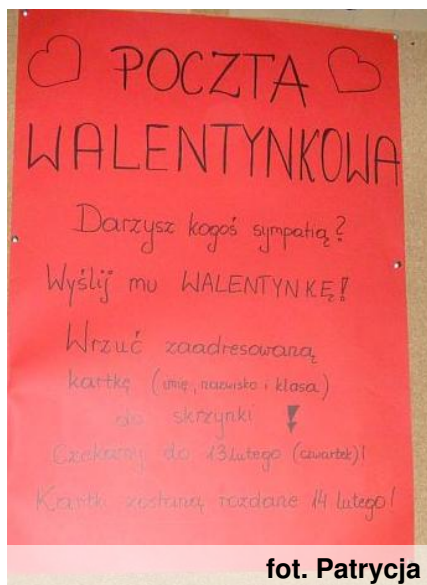 POCZTA
WALENTYNKOWA
Darzysz kogoś sympatią?
Wyślij mu WALENTYNKĘ!
Wrzuć zaadresowaną
kartkę (imię, nazwisko i klasa)
do skrzynki !
Czekamy do 13 lutego (czwartek)!
Kartki zostaną rozdane 14 lutego!
fot. Patrycja